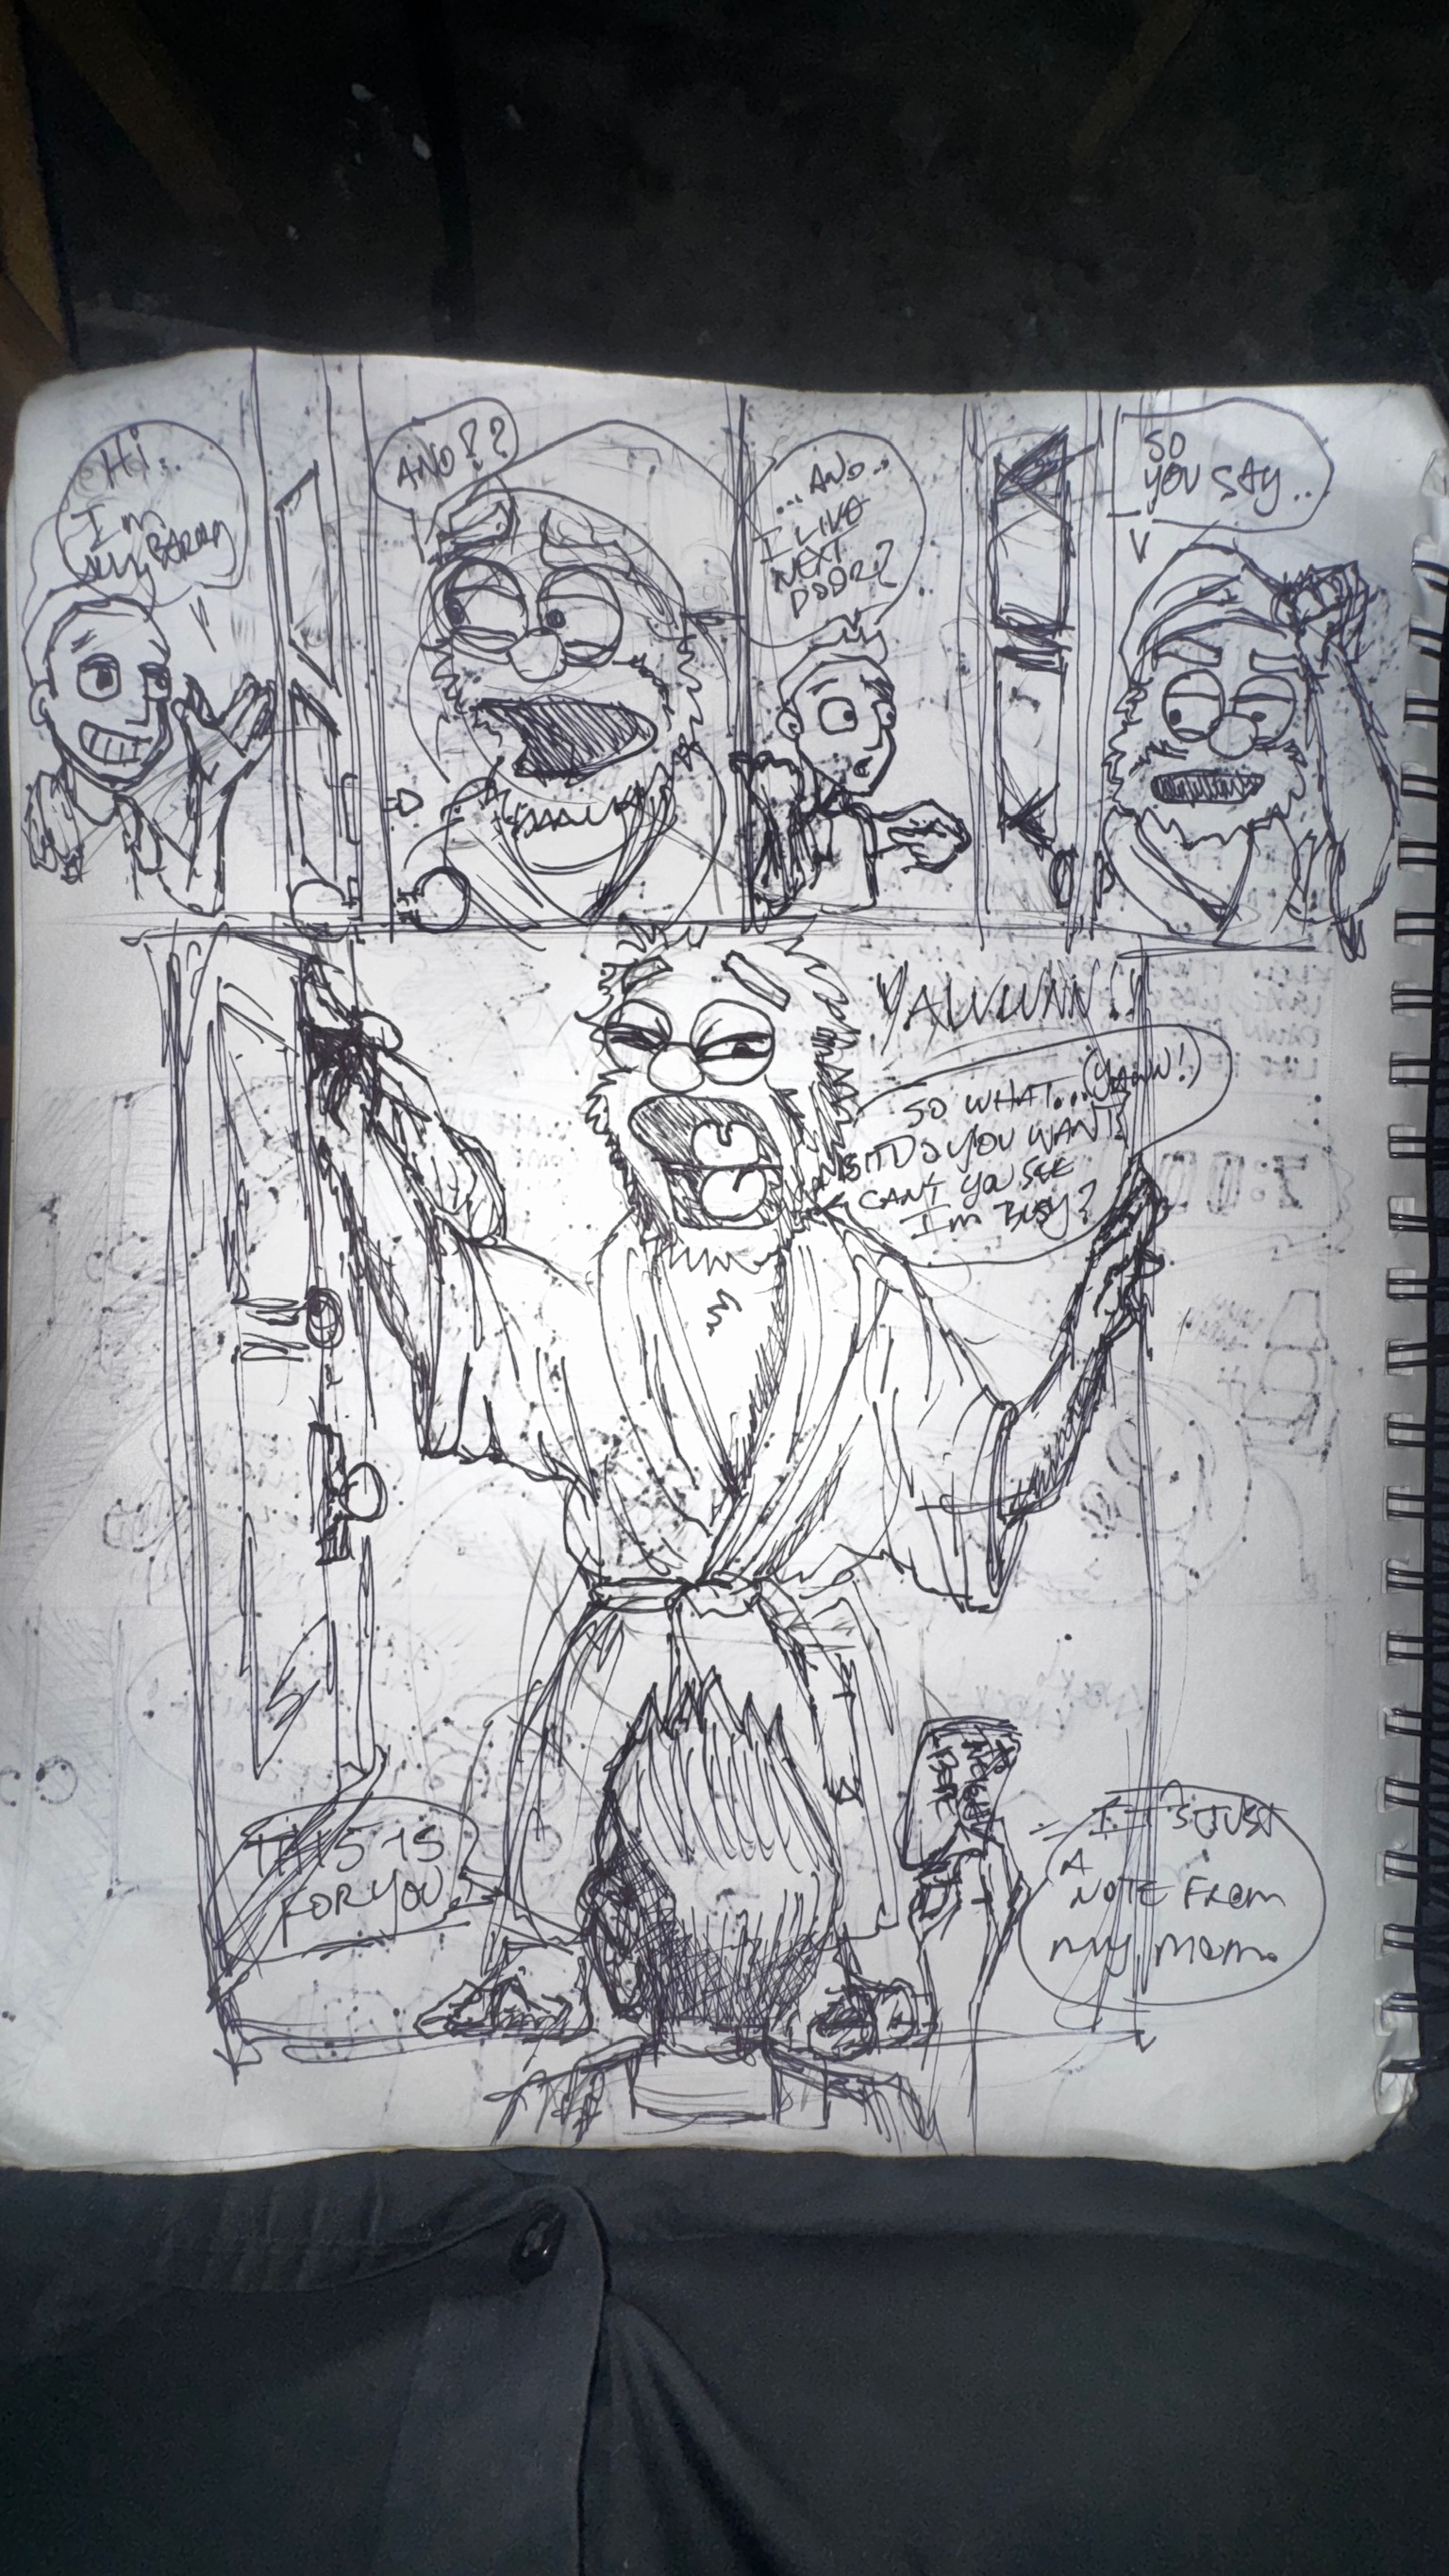 Hi..
I'm
BARRY
AND??
...AND..
I LIVE
NEXT
DOOR?
SO
YOU SAY..
YAWWNN!!
SO WHAT...(YAWW!)
DO YOU WANT?
CANT YOU SEE
I'm BUSY?
THIS IS
FOR YOU.
IT'S JUST
A
NOTE FROM
my mom.